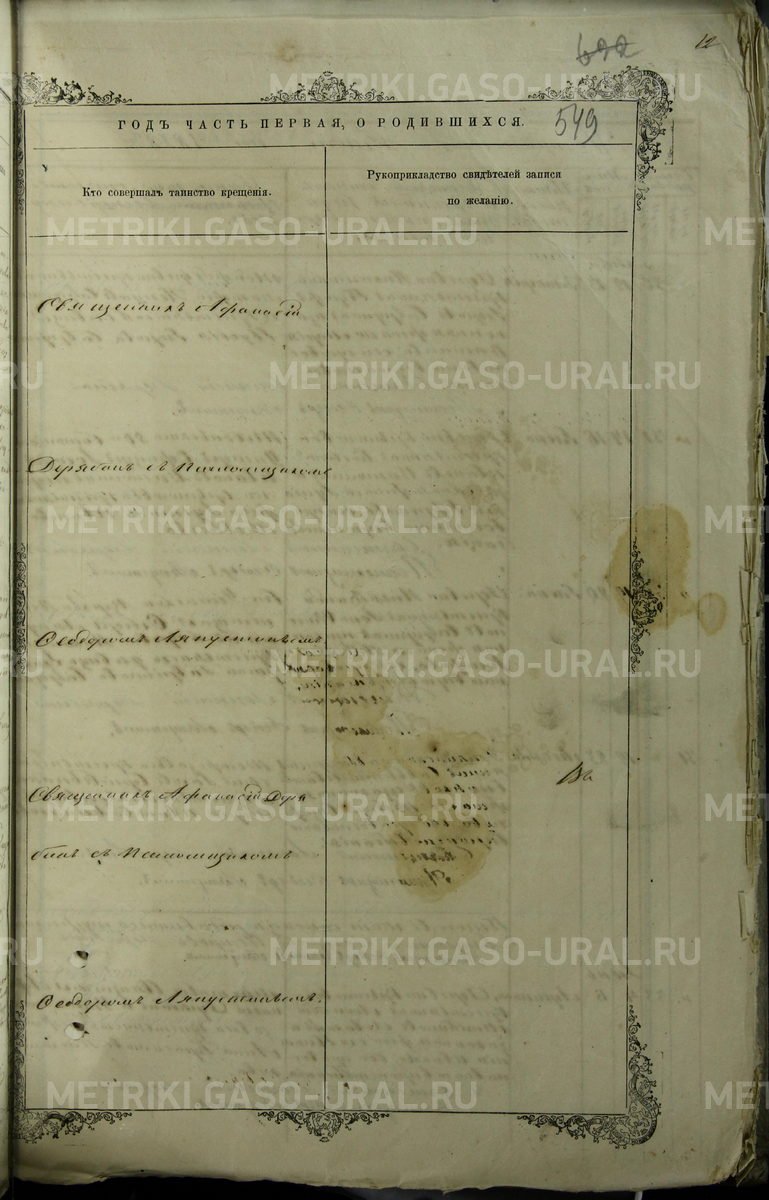 12
549
ГОДЪ ЧАСТЬ ПЕРВАЯ, О РОДИВШИХСЯ.
Кто совершалъ таинство крещенія.
Рукоприкладство свидѣтелей записи
по желанію.
Священникъ Афанасій
Дерябинъ съ Псаломщикомъ
Ѳеодоромъ Ляпустинымъ
Священникъ Афанасій Деря
бинъ съ Псаломщикомъ
Ѳеодоромъ Ляпустинымъ.
METRIKI.GASO-URAL.RU
METRIKI.GASO-URAL.RU
METRIKI.GASO-URAL.RU
METRIKI.GASO-URAL.RU
METRIKI.GASO-URAL.RU
METRIKI.GASO-URAL.RU
METRIKI.GASO-URAL.RU
METRIKI.GASO-URAL.RU